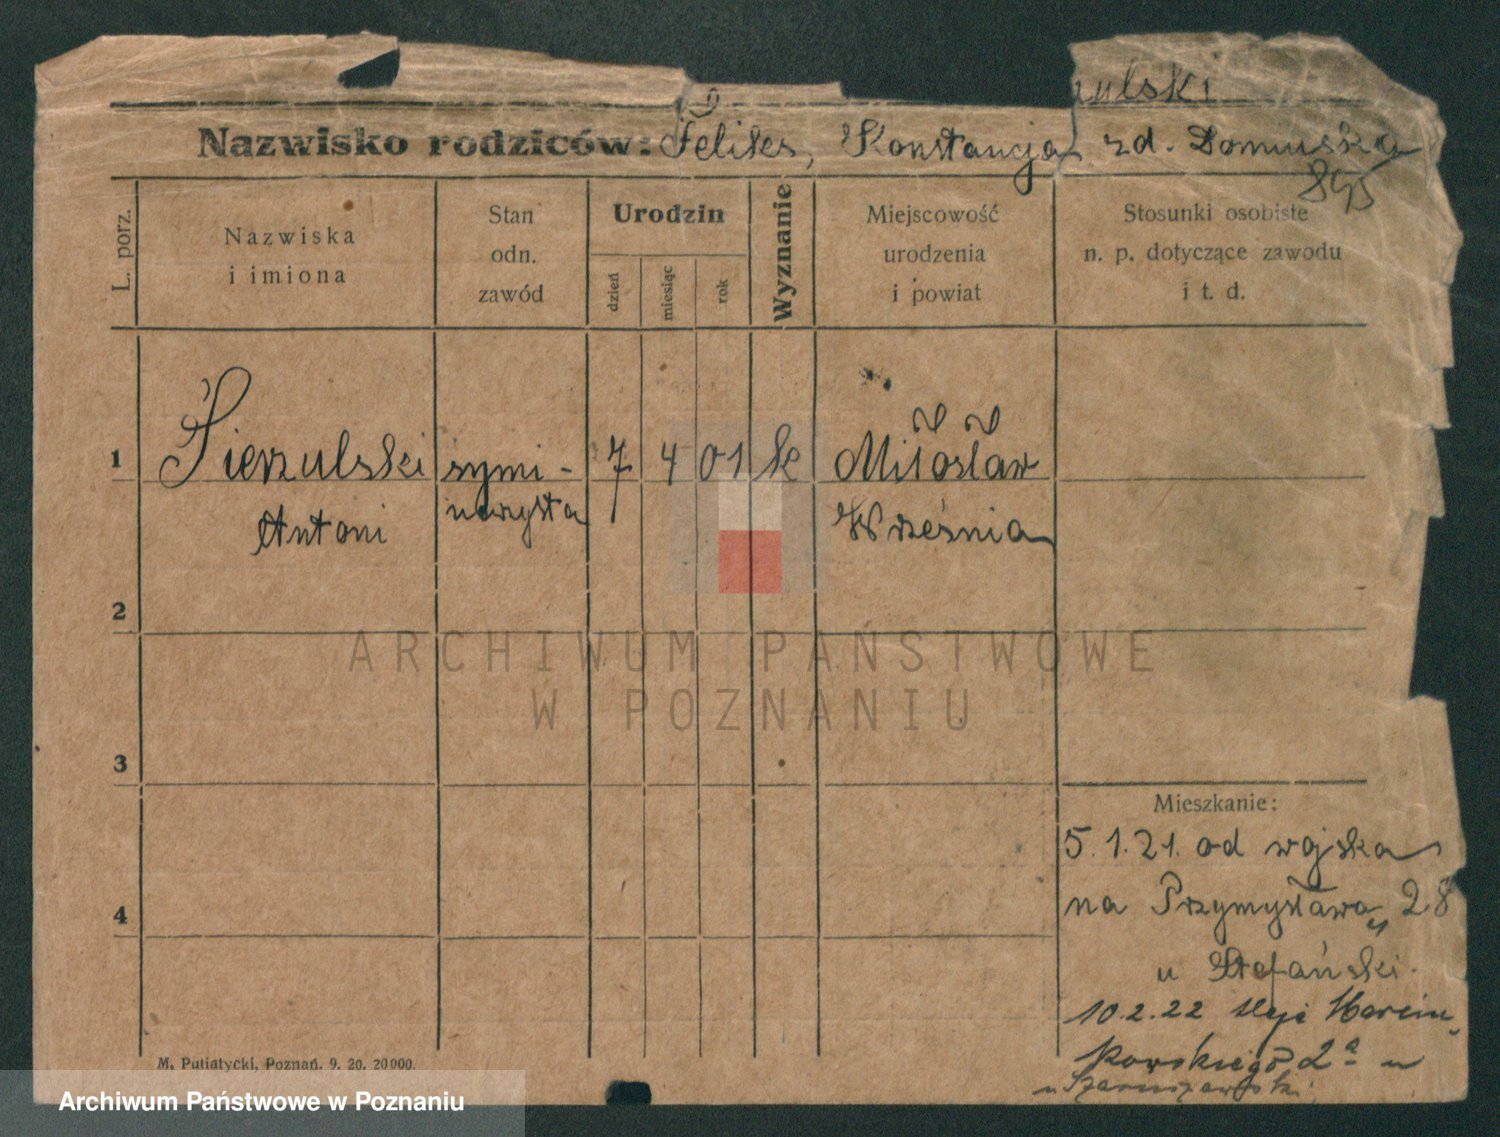 zulski
Nazwisko rodziców: Feliks, Konstancja zd. Domuska
895
L. porz.
Nazwiska
i imiona
Stan
odn.
zawód
Urodzin
dzień
miesiąc
rok
Wyznanie
Miejscowość
urodzenia
i powiat
Stosunki osobiste
n. p. dotyczące zawodu
i t. d.
1
Sierzulski
Antoni
symi-
narzysta
7
4
01
k
Miłosław
Września
2
3
4
Mieszkanie:
5.1.21. od wojska
na Przymysława 28
u Stefański.
10.2.22 Aleje Marcin
kowskiego 2a u
M. Putiatycki, Poznań. 9. 20. 20000.
ARCHIWUM PAŃSTWOWE
W POZNANIU
Archiwum Państwowe w Poznaniu